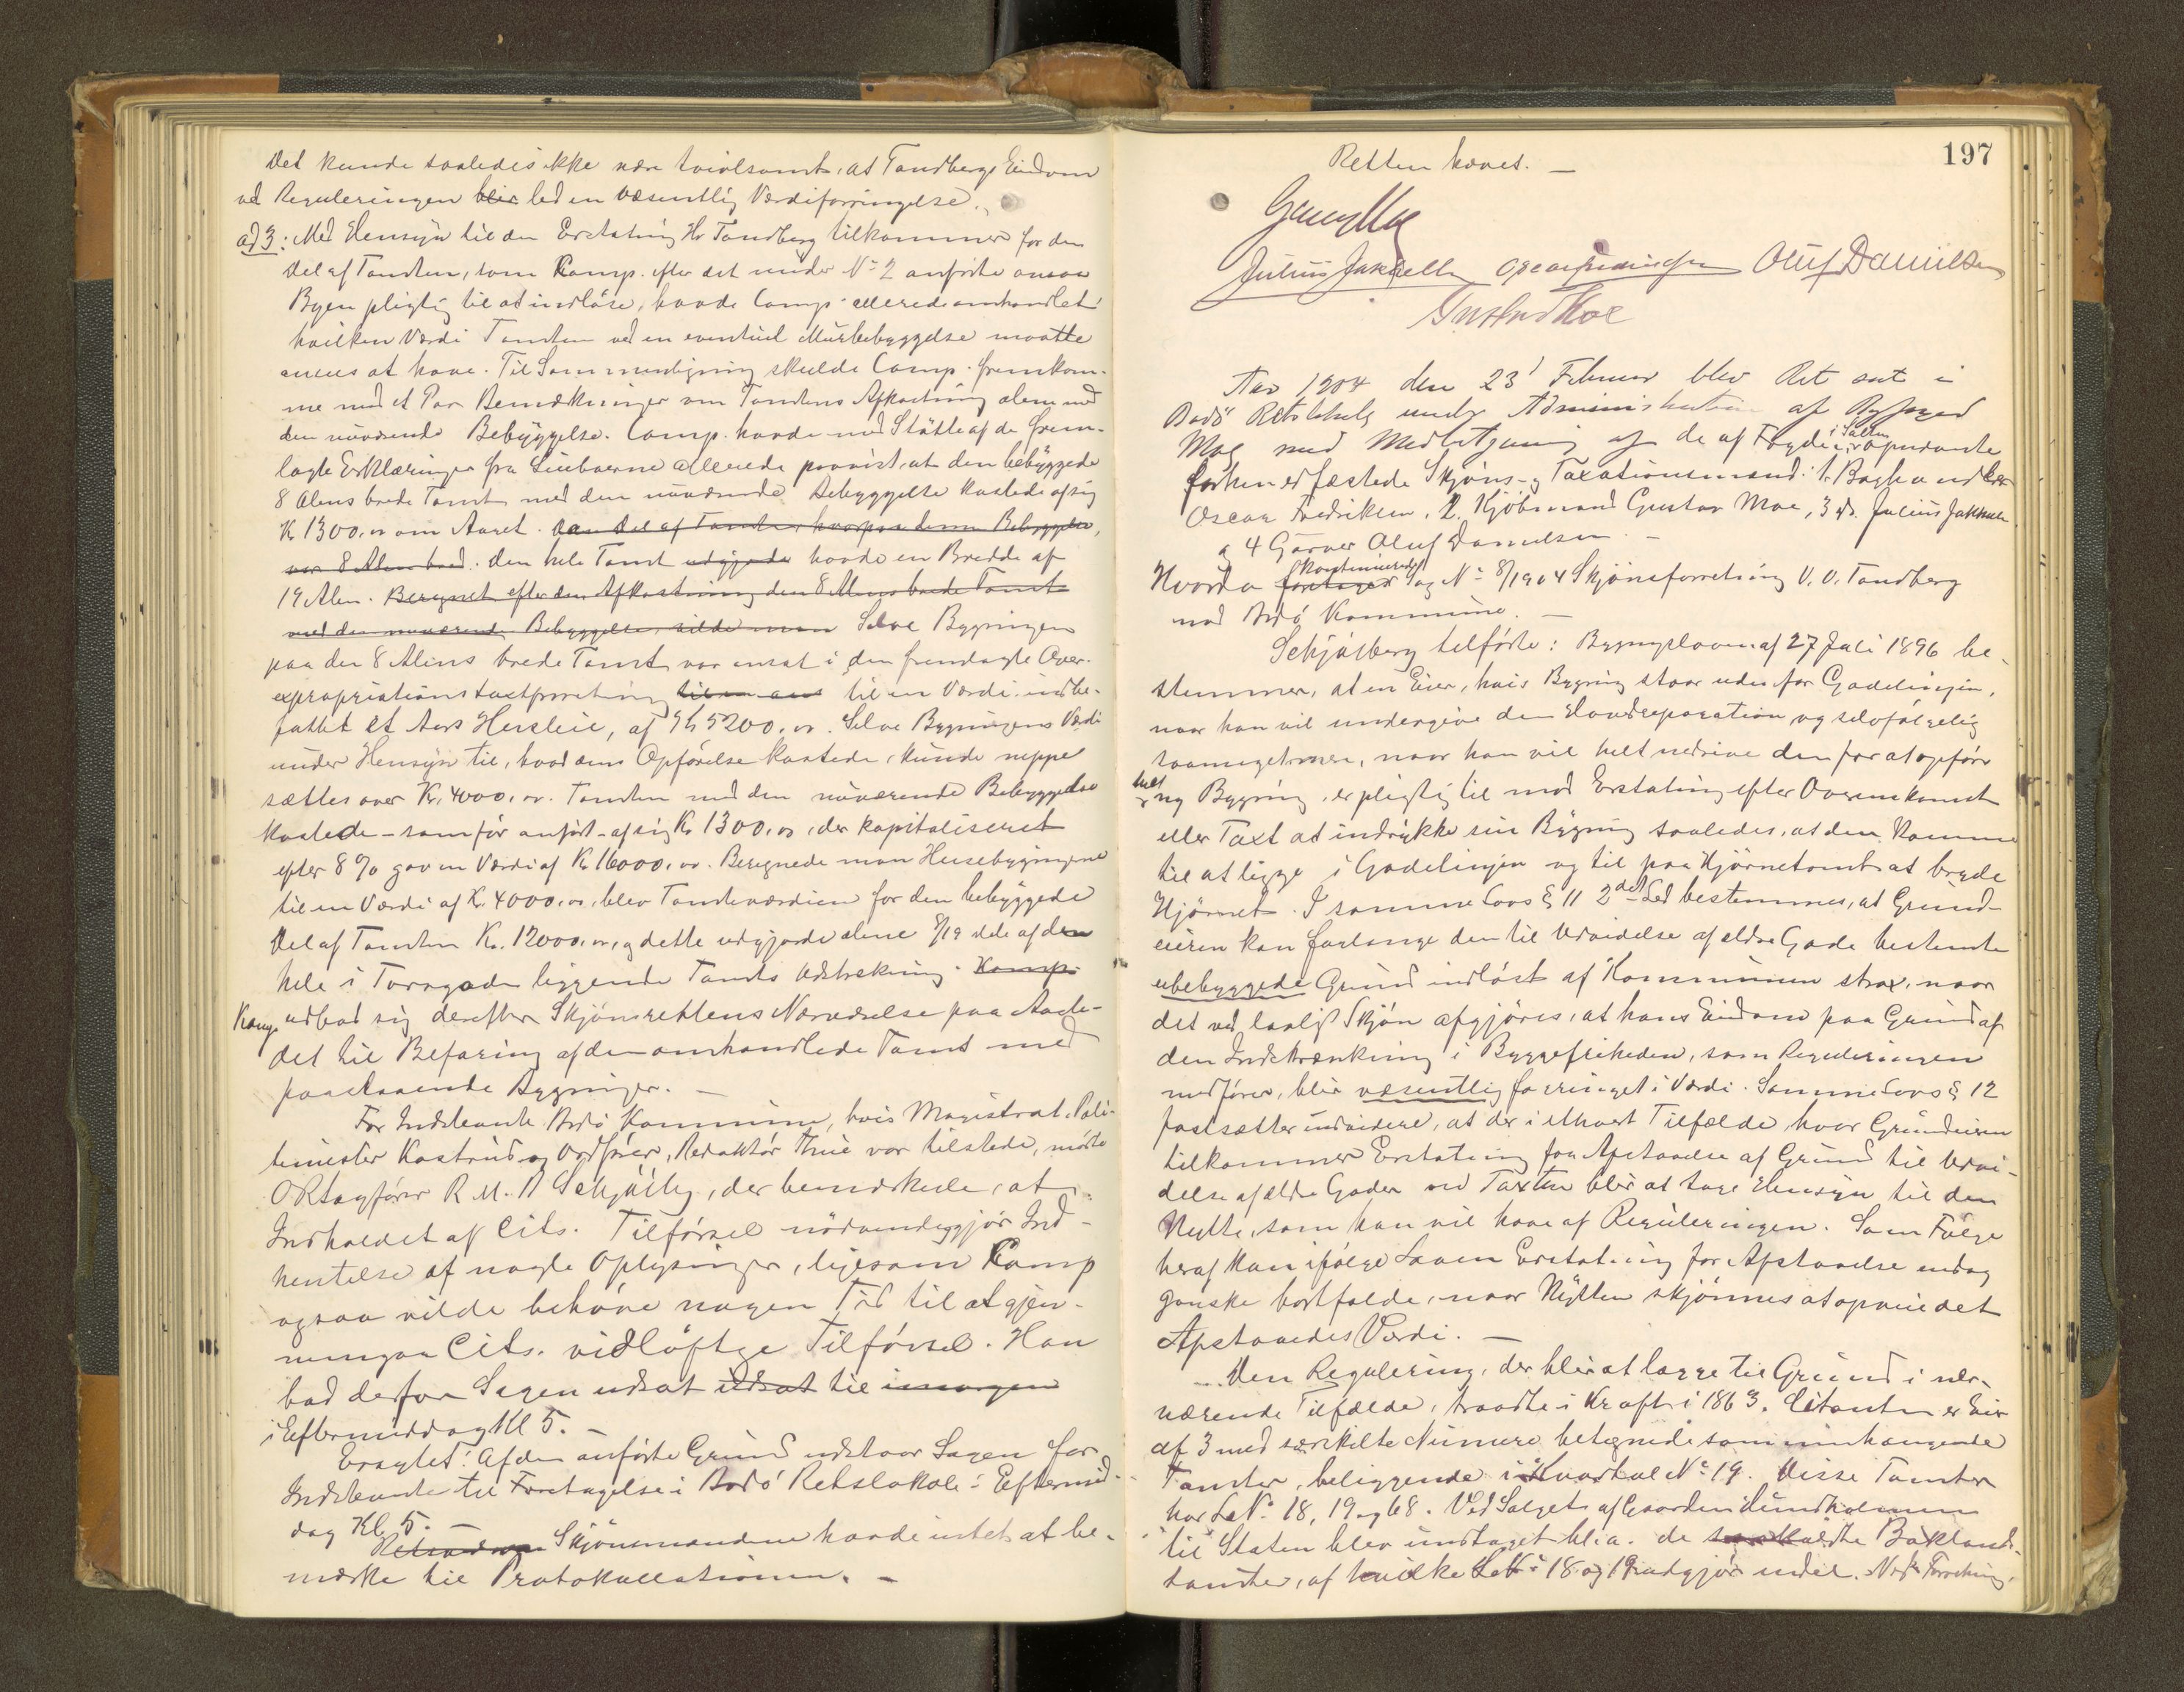 Det kunde saaledes ikke være tvivlsomt, at Tandbergs Eiendom
ved Reguleringen blir led en væsentlig Værdiforringelse.
ad 3: Med Hensyn til den Erstatning Hr Tandberg tilkommer for den
Del af Tomten, som Comp. efter det under No 2 anførte ansaa
Byen pligtig til at indløse, havde Comp. allerede omhandlet
hvilken Værdi Tomten ved en eventuel Murbebyggelse maatte
ansees at have. Til Sammenligning skulde Comp. fremkom-
me med et Par Bemærkninger om Tomtens Afkastning alene med
den nuværende Bebyggelse. Comp. havde med Støtte af de frem-
lagte Erklæringer fra Leieboerne allerede paavist, at den bebyggede
8 Alens brede Tomt med den nuværende Bebyggelse kastede af sig
Kr 1300,00 om Aaret. Den Del af Tomten, hvorpaa denne Bebyggelse,
var 8 Alen bred. Den hele Tomt udgjorde havde en Bredde af
19 Alen. Beregnet efter den Afkastning den 8 Alens brede Tomt
med den nuværende Bebyggelse vilde man Selve Bygningen
paa den 8 Alens brede Tomt var ansat i den fremlagte Over-
expropriationstaxtforretning til en Værdi, indbe-
fattet et Aars Husleie, af Kr 5200,00. Selve Bygningens Værdi
under Hensyn til, hvad dens Opførelse kostede, kunde neppe
sættes over Kr. 4000,00. Tomten med den nuværende Bebyggelse
kastede - som før anført - af sig Kr 1300,00, der kapitaliseret
efter 8 % gav en Værdi af Kr 16000,00. Beregnede man Husebygningerne
til en Værdi af Kr. 4000,00, blev Tomteværdien for den bebyggede
Del af Tomten Kr. 12000,00, og dette udgjorde alene 8/19 dele af den
hele i Torvgaden liggende Tomts Udstrækning. Komp.
Komp. udbad sig derefter Skjønsrettens Nærværelse paa Aaste-
det til Befaring af den omhandlede Tomt med
paastaaende Bygninger. —
For Indstevnte Bodø Kommune, hvis Magistrat, Poli-
timester Kastrud og Ordfører, Redaktør Thue var tilstede, mødte
ORsagfører R. M. B. Schjølberg, der bemærkede, at
Indholdet af Cits. Tilførsel nødvendiggjør Ind-
hentelse af nogle Oplysninger, ligesom Comp
ogsaa vilde behøve nogen Tid til at gjen-
nemgaa Cits. vidløftige Tilførsel. Han
bad derfor Sagen udsat udsat til imorgen
i Eftermiddag Kl 5. —
Eragtet: Af den anførte Grund udstaar Sagen for
Indstevnte til Foretagelse i Bodø Retslokale i Eftermid-
dag Kl. 5. —
Skjønsmændene havde intet at be-
mærke til Protokollationen. —
197
Retten hævet. —
Julius Jakhelln Oscar Fredriksen Oluf Danielsen
Gustav Moe
Aar 1904 den 23' Februar blev Ret sat i
Bodø Retslokale under Administration af Byfoged
Moe med Medbetjening af de af Fogden i Salten opnævnte
forhen edfæstede Skjøns- og Taxationsmænd: 1. Boghandler
Oscar Fredriksen, 2. Kjøbmand Gustav Moe, 3 do. Julius Jakhelln
og 4 Garver Oluf Danielsen. —
Hvorda foretages kontinueredes Sag No 8/1904 Skjønsforretning V. O. Tandberg
mod Bodø Kommune. —
Schjølberg tilførte: Bygningsloven af 27 Juli 1896 be-
stemmer, at en Eier, hvis Bygning staar udenfor Gadelinjen,
naar han vil undergive den Hovedreparation og selvfølgelig
saameget mere, naar han vil helt nedrive den for at opføre
helt ny Bygning, er pligtig til mod Erstatning efter Overenskomst
eller Taxt at indrykke sin Bygning saaledes, at den kommer
til at ligge i Gadelinjen og til paa Hjørnetomt at bryde
Hjørnet. I samme Lovs § 11 2det Led bestemmes, at Grund-
eieren kan forlange den til Udvidelse af ældre Gade bestemte
ubebyggede Grund indløst af Kommunen strax, naar
det ved lovligt Skjøn afgjøres, at hans Eiendom paa Grund af
den Indskrænkning i Byggefriheden, som Reguleringen
medfører, blir væsentlig forringet i Værdi. Samme Lovs § 12
fastsætter endvidere, at der i ethvert Tilfælde, hvor Grundeieren
tilkommer Erstatning for Afstaaelse af Grund til Udvi-
delse af ældre Gader ved Taxten blir at tage Hensyn til den
Nytte, som han vil have af Reguleringen. Som Følge
heraf kan ifølge Loven Erstatning for Afstaaelse endog
ganske bortfalde, naar Nytten skjønnes at opveie det
Afstaaedes Værdi. —
Den Regulering, der blir at lægge til Grund i nær-
værende Tilfælde, traadte i Kraft i 1863. Citanten er Eier
af 3 med særskilte Numere betegnede sammenhængende
Tomter, beliggende i Kvartal No 19. Disse Tomter
har L No. 18, 19 og 68. Ved Salget af Gaarden Hundholmen
til Staten blev undtaget bl. a. de saakaldte Bakland-
tomter, af hvilke L No 18 og 19 udgjør endel. Ved Forretning